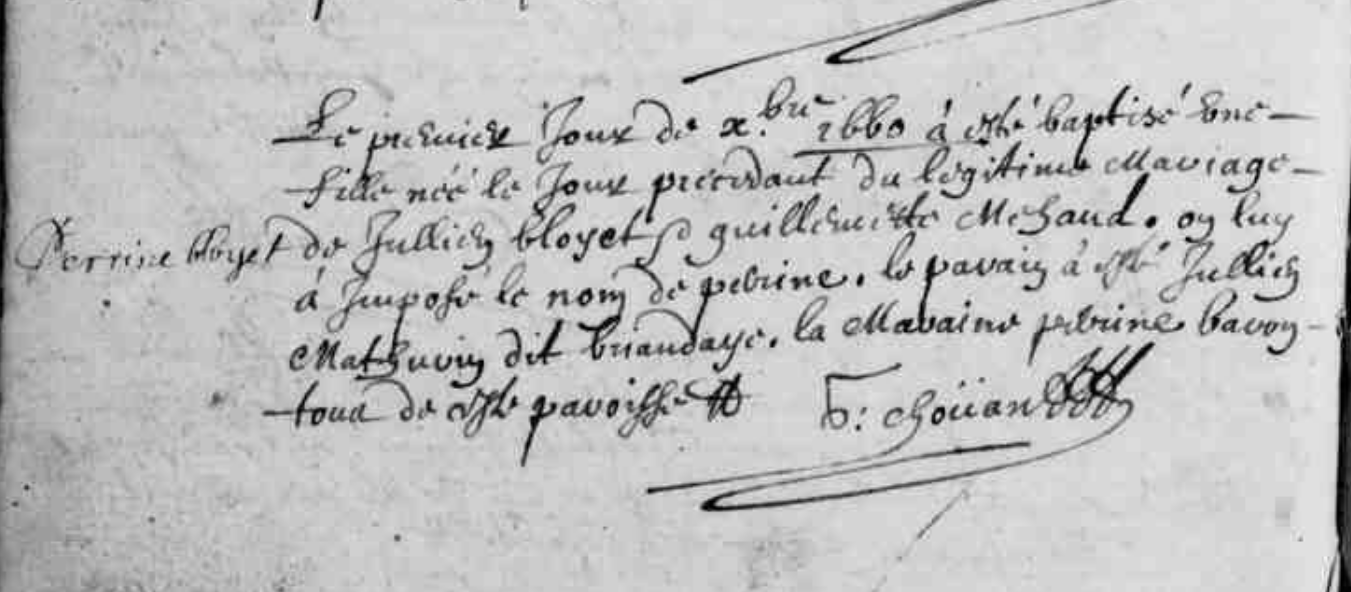 Le premier Jour de x.bre 1660 á esté baptisé une
fille néé le Jour precedant du legitime Mariage
Perrine bloyet
de Jullien bloyet & guillemette Mehaud. on luy
á Imposé le nom de perrine. le parain á esté Jullien
Mathurin dit briandaye. la Maraine perrine baron
tous de cste paroisse
F: choüan